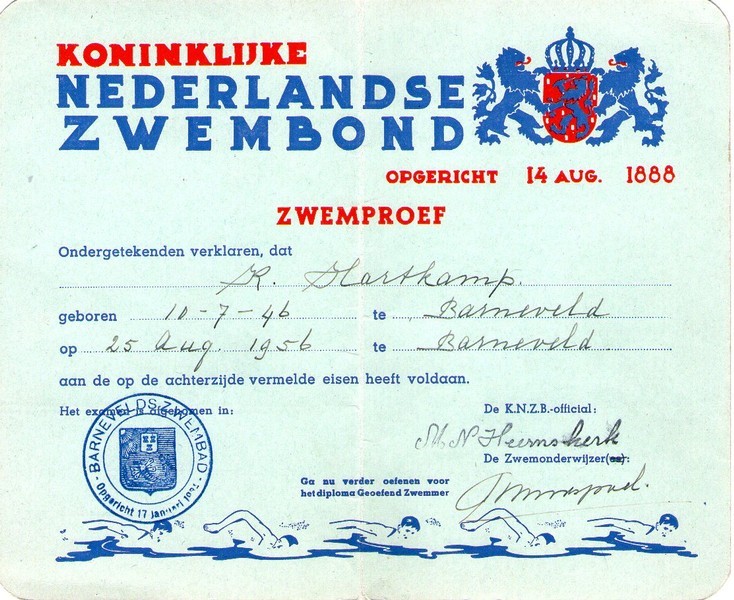 KONINKLIJKE
NEDERLANDSE
ZWEMBOND
OPGERICHT 14 AUG. 1888
ZWEMPROEF
Ondergetekenden verklaren, dat
K. Hartkamp.
geboren 10-7-46 te Barneveld
op 25 Aug. 1956 te Barneveld.
aan de op de achterzijde vermelde eisen heeft voldaan.
Het examen is afgenomen in:
BARNEVELDS-ZWEMBAD
Opgericht 17 januari
De K.N.Z.B.-official:
M N Heemskerk
De Zwemonderwijzer(es):
Ga nu verder oefenen voor
het diploma Geoefend Zwemmer